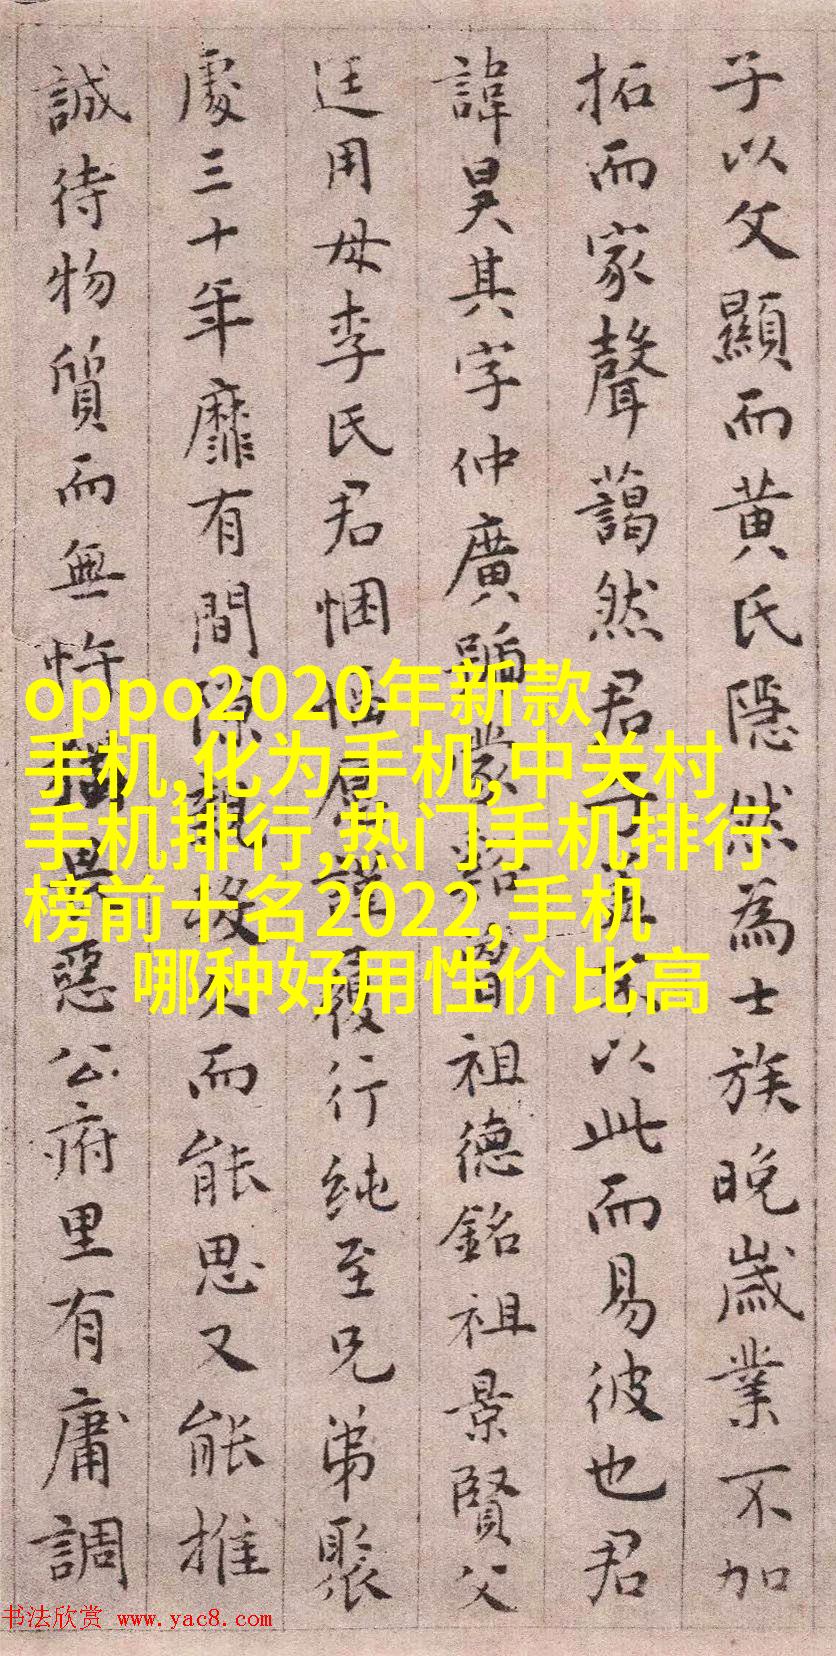 子以父顯而黄氏隠然為士族晚歲業不加
拓而家聲藹然君以此而易彼也君
諱昊其字仲廣祖德銘祖景賢父
廷用母李氏君悃履行純至兄弟聚
處三十年靡有間隙而能思又能推
誠待物質而無忤惡公府里有庸調
oppo2020年新款
手机,化为手机,中关村
手机排行,热门手机排行
榜前十名2022,手机
哪种好用性价比高
书法欣赏 www.yac8.com